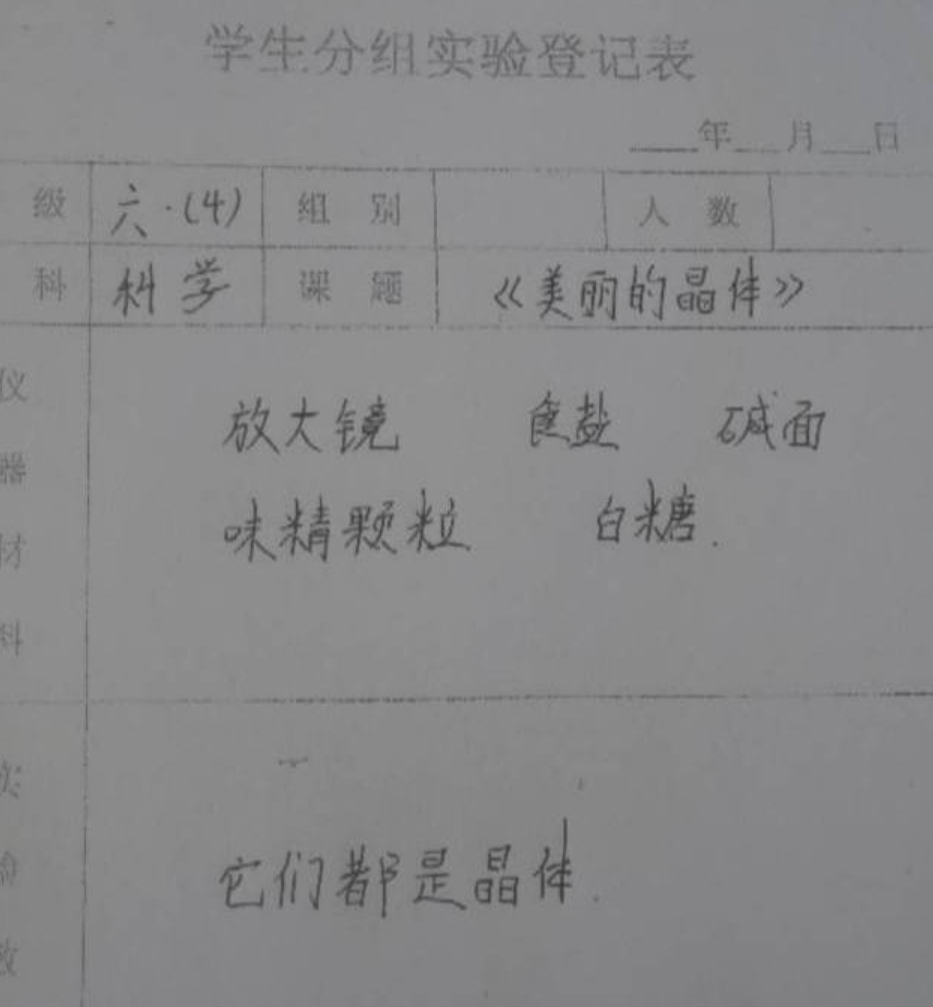 学生分组实验登记表
年 月 日
级 六·(4) 组别 人数
科 科学 课题 《美丽的晶体》
仪器材料
放大镜 食盐 碱面
味精颗粒 白糖.
实验效
它们都是晶体.